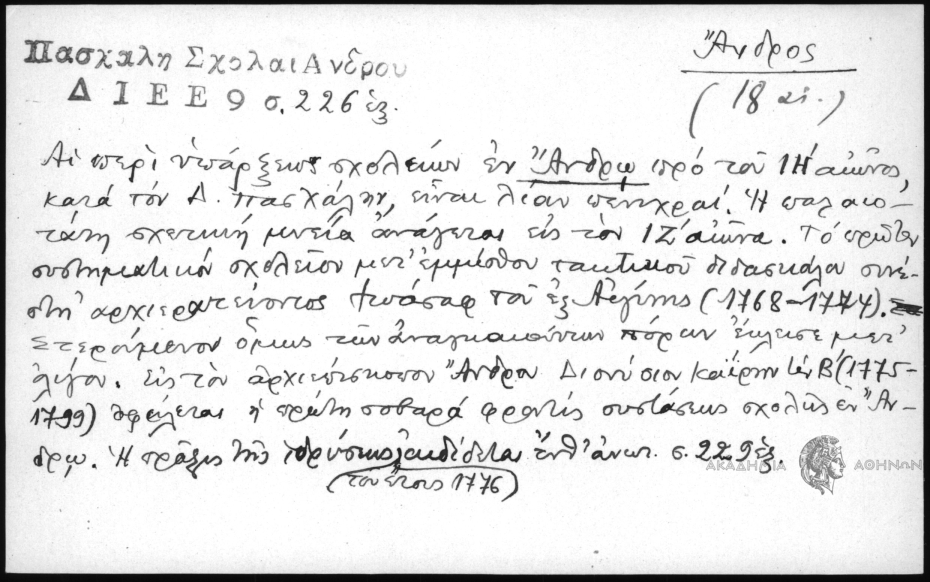 Πασχαλη Σχολαι Ανδρου
Δ Ι Ε Ε 9 σ. 226 ἑξ.
Ἄνδρος
(18 αἰ.)
Αἱ περὶ ὑπάρξεως σχολείων ἐν Ἄνδρῳ πρό τοῦ ΙΗ΄ αἰῶνος,
κατά τόν Δ. Πασχάλην, εἶναι λίαν πενιχραί. Ἡ παλαιο-
τάτη σχετική μνεία ἀνάγεται εἰς τὸν ΙΖ΄ αἰῶνα. Τό πρῶτον
συστηματικόν σχολεῖον μετ' ἐμμίσθου τακτικοῦ διδασκάλου συνέ-
στη ἀρχιερατεύοντος Ἰωάσαφ τοῦ ἐξ Αἰγίνης (1768-1774).
Στερούμενον ὅμως τῶν ἀναγκαιούντων πόρων ἔκλεισε μετ'
ὀλίγον. Εἰς τὸν ἀρχιεπίσκοπον Ἄνδρου Διονύσιον Καΐρην τὸν Β΄ (1775-
1799) ὀφείλεται ἡ πρώτη σοβαρά φροντίς συστάσεως σχολῆς ἐν Ἄν-
δρῳ. Ἡ πρᾶξις τῆς ἱδρύσεως ἐκδίδεται ἔνθ' ἀνωτ. σ. 229 ἑξ.
(τοῦ ἔτους 1776)
ΑΚΑΔΗΜΙΑ ΑΘΗΝΩΝ